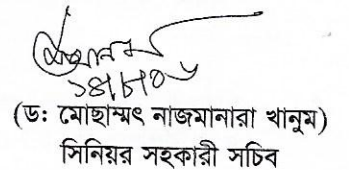 (ড: মোছাম্মৎ নাজমানারা খানুম)
সিনিয়র সহকারী সচিব